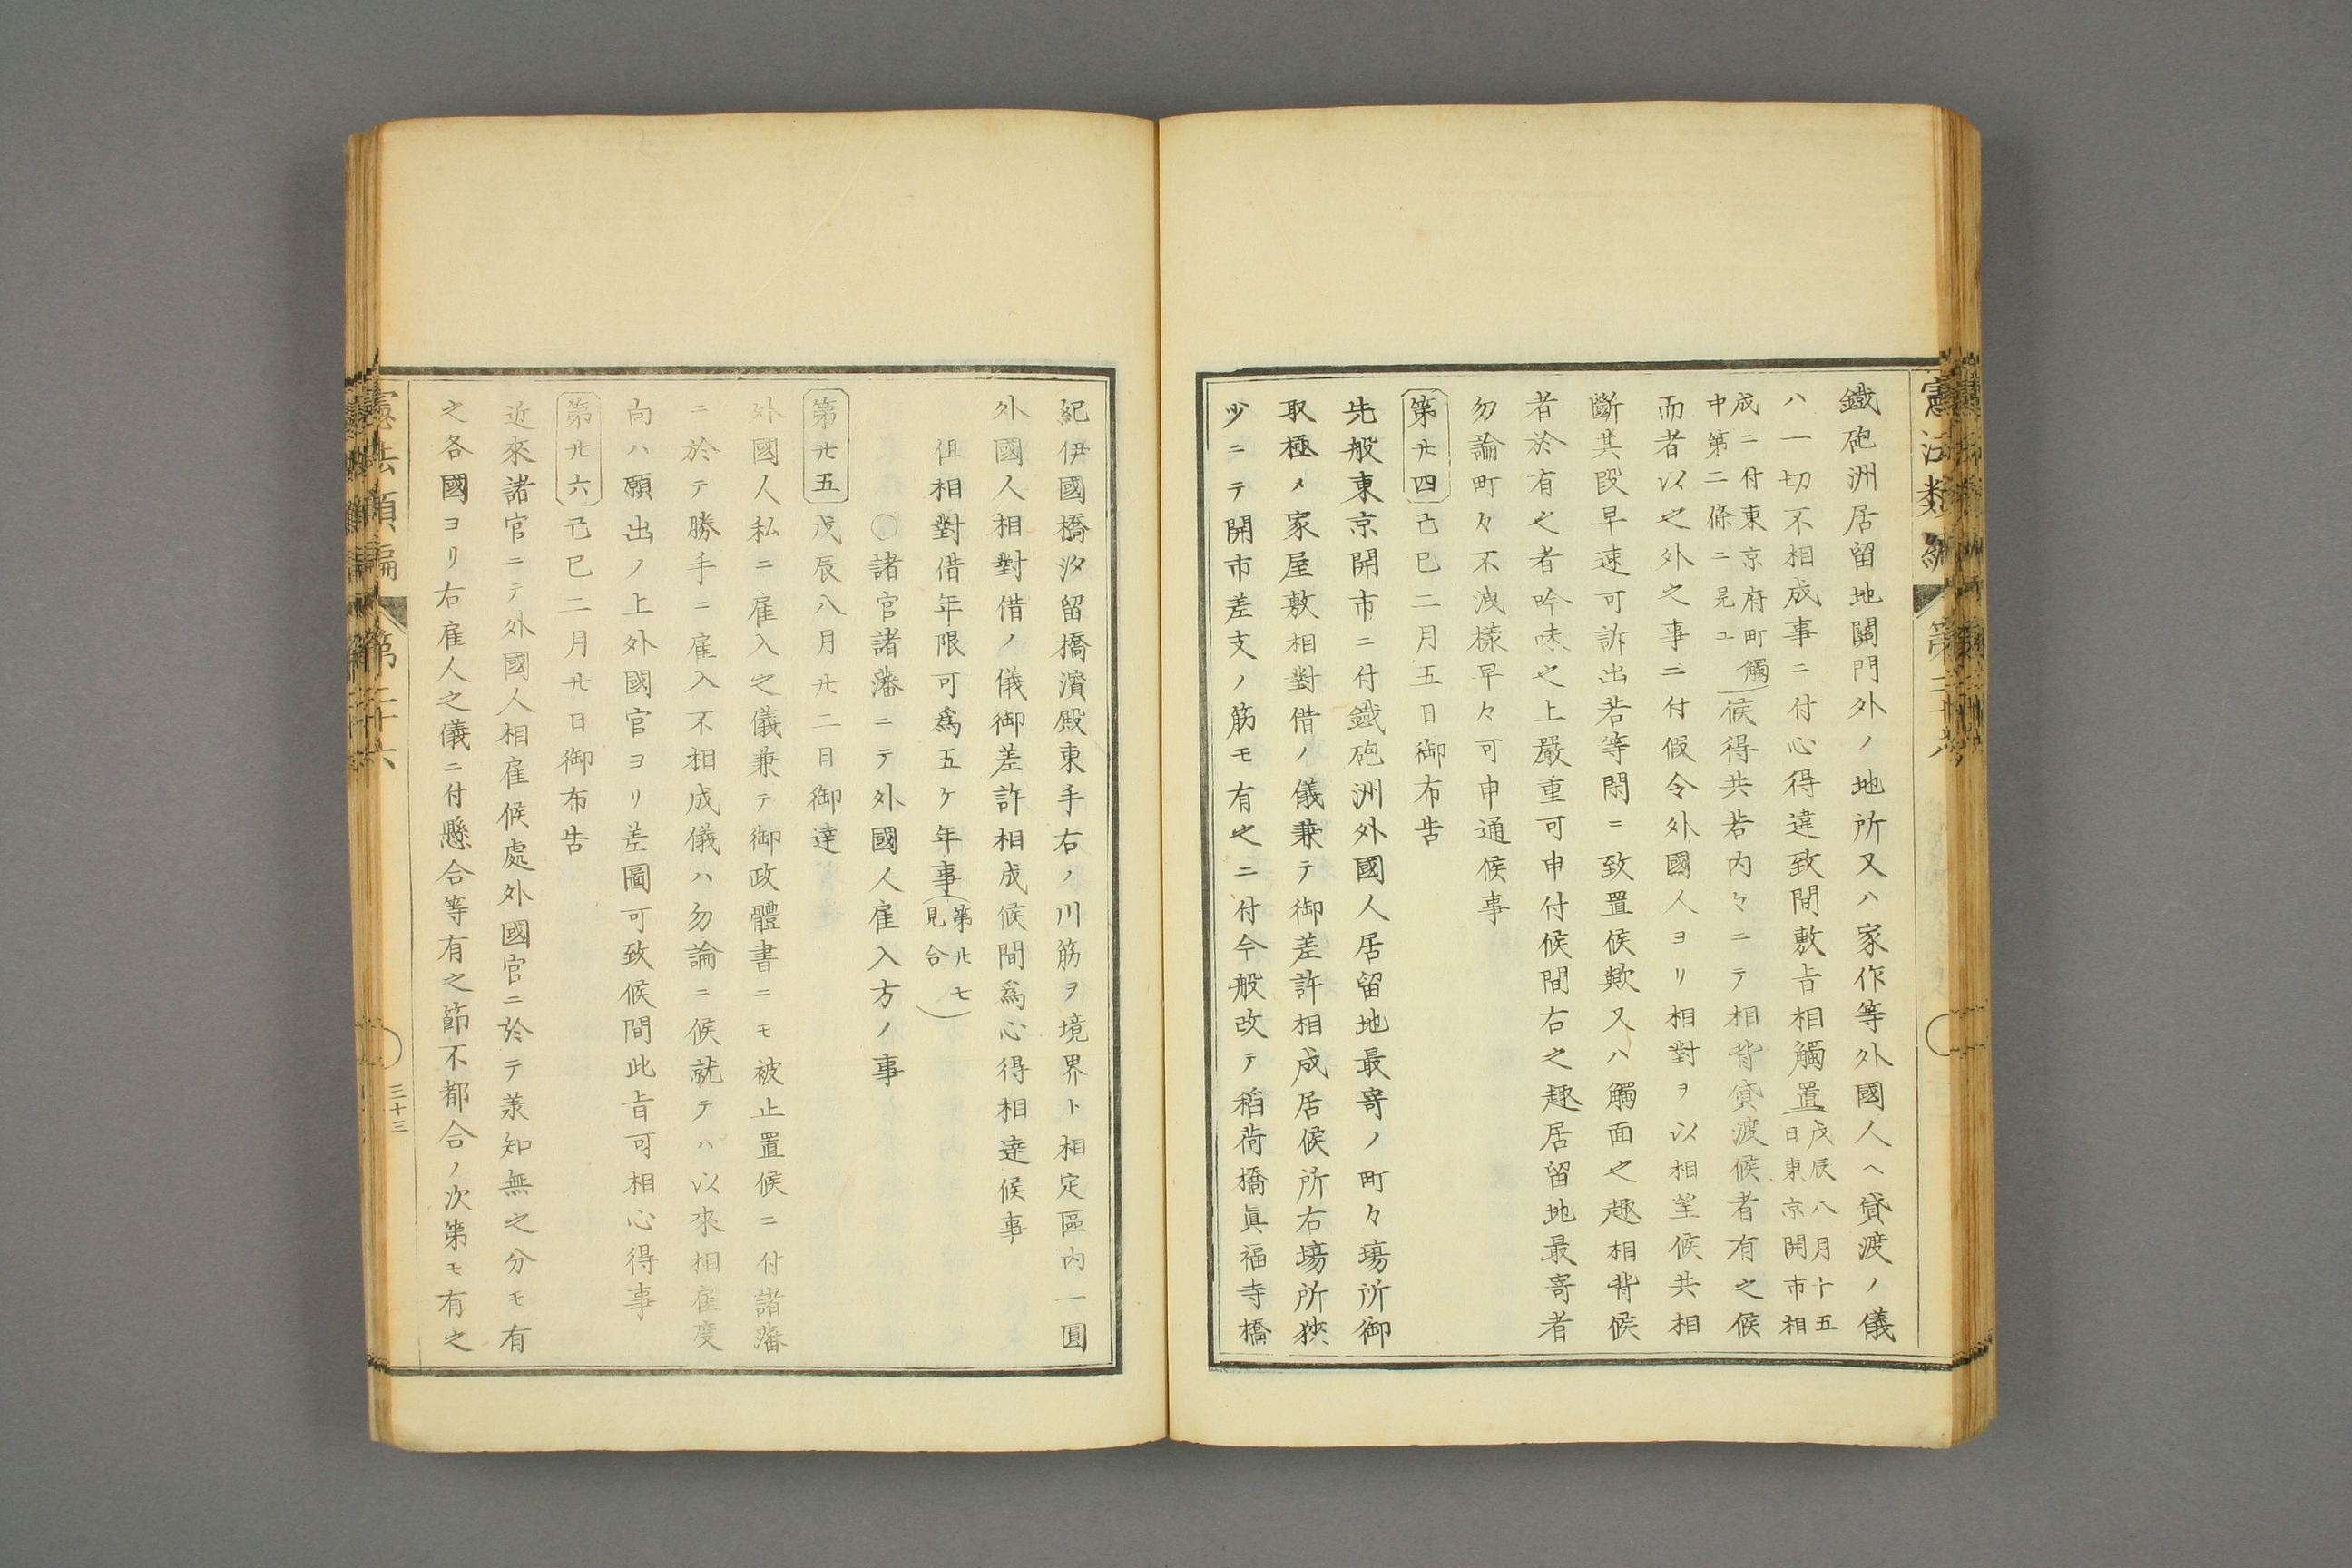 鐵砲洲居留地關門外ノ地所又ハ家作等外國人ヘ貸渡ノ儀
ハ一切不相成事ニ付心得違致間敷旨相觸置(戊辰八月十五
日東京開市相
成ニ付東京府町觸
中第二條ニ見ユ)候得共若內々ニテ相背貸渡候者有之候
而者以之外之事ニ付假令外國人ヨリ相對ヲ以相望候共相
斷其段早速可訴出若等閑ニ致置候歟又ハ觸面之趣相背候
者於有之者吟味之上嚴重可申付候間右之趣居留地最寄者
勿論町々不洩樣早々可申通候事
第廿四 己巳二月五日御布告
先般東京開市ニ付鐵砲洲外國人居留地最寄ノ町々場所御
取極メ家屋敷相對借ノ儀兼テ御差許相成居候所右場所狹
少ニテ開市差支ノ筋モ有之ニ付今般改テ稻荷橋眞福寺橋
憲法類編 第二十六
紀伊國橋汐留橋濱殿東手右ノ川筋ヲ境界ト相定區內一圓
外國人相對借ノ儀御差許相成候間爲心得相達候事
但相對借年限可爲五ケ年事(第廿七
見合)
〇諸官諸藩ニテ外國人雇入方ノ事
第廿五 戊辰八月廿二日御達
外國人私ニ雇入之儀兼テ御政體書ニモ被止置候ニ付諸藩
ニ於テ勝手ニ雇入不相成儀ハ勿論ニ候就テハ以來相雇度
向ハ願出ノ上外國官ヨリ差圖可致候間此旨可相心得事
第廿六 己巳二月廿日御布告
近來諸官ニテ外國人相雇候處外國官ニ於テ羕知無之分モ有
之各國ヨリ右雇人之儀ニ付懸合等有之節不都合ノ次第モ有之
憲法類編 第二十六
三十三